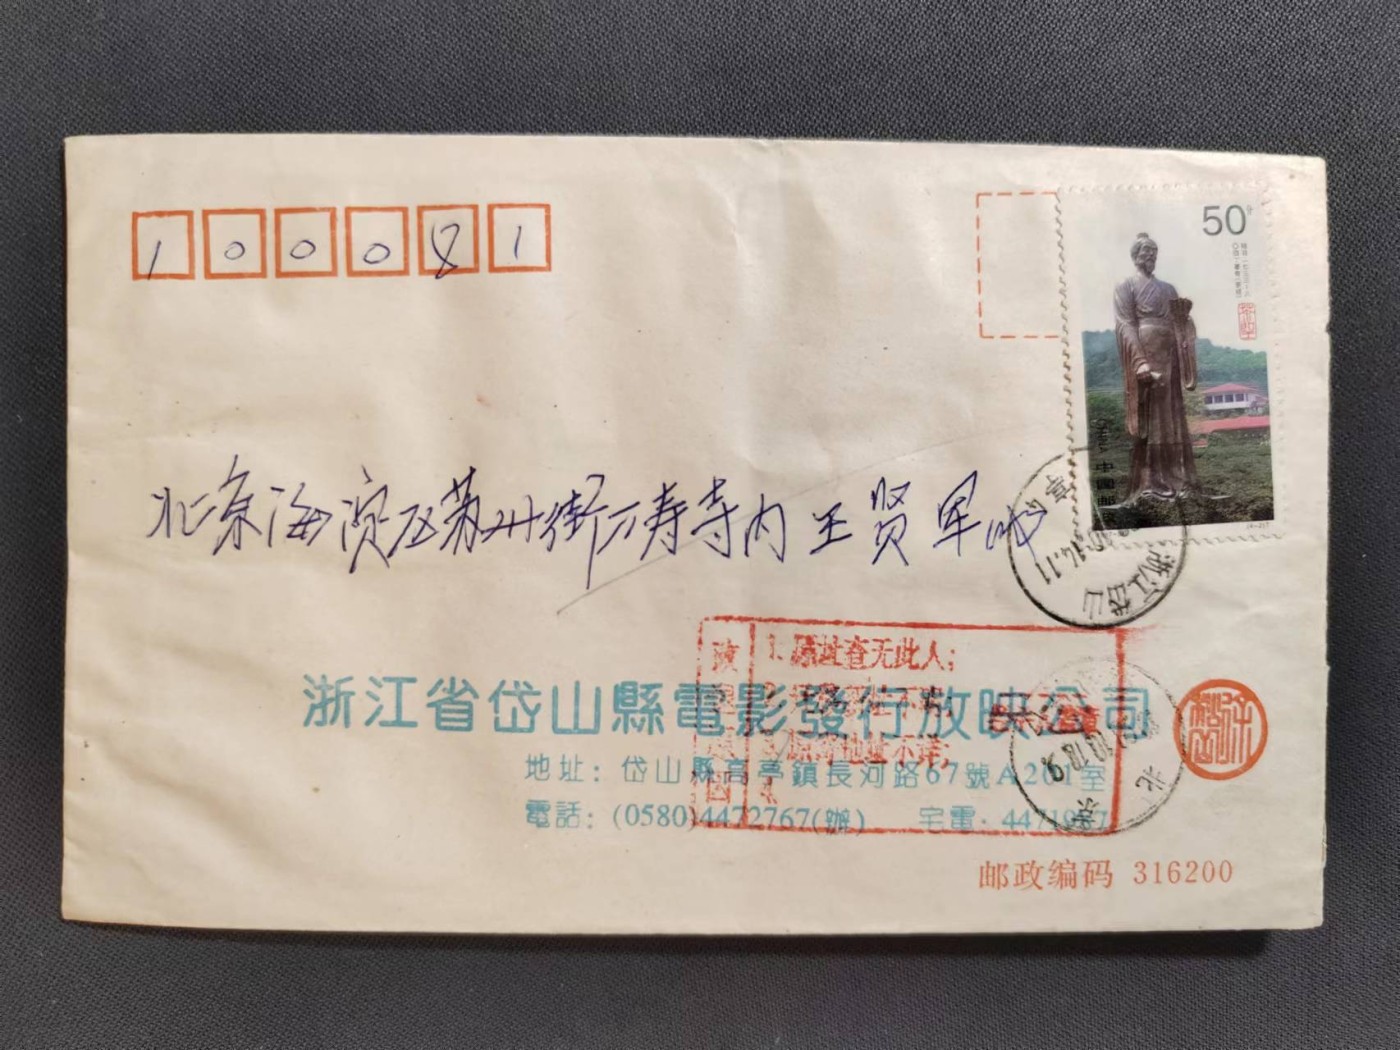 100081
50分
中国邮
北京海淀区苏州街万寿寺内王贤军收
浙江岱山
1.原址查无此人;
浙江省岱山縣電影發行放映公司
地址：岱山縣高亭鎮長河路67號A201室
電話：(0580)4472767(辦) 宅電
北京
邮政编码 316200